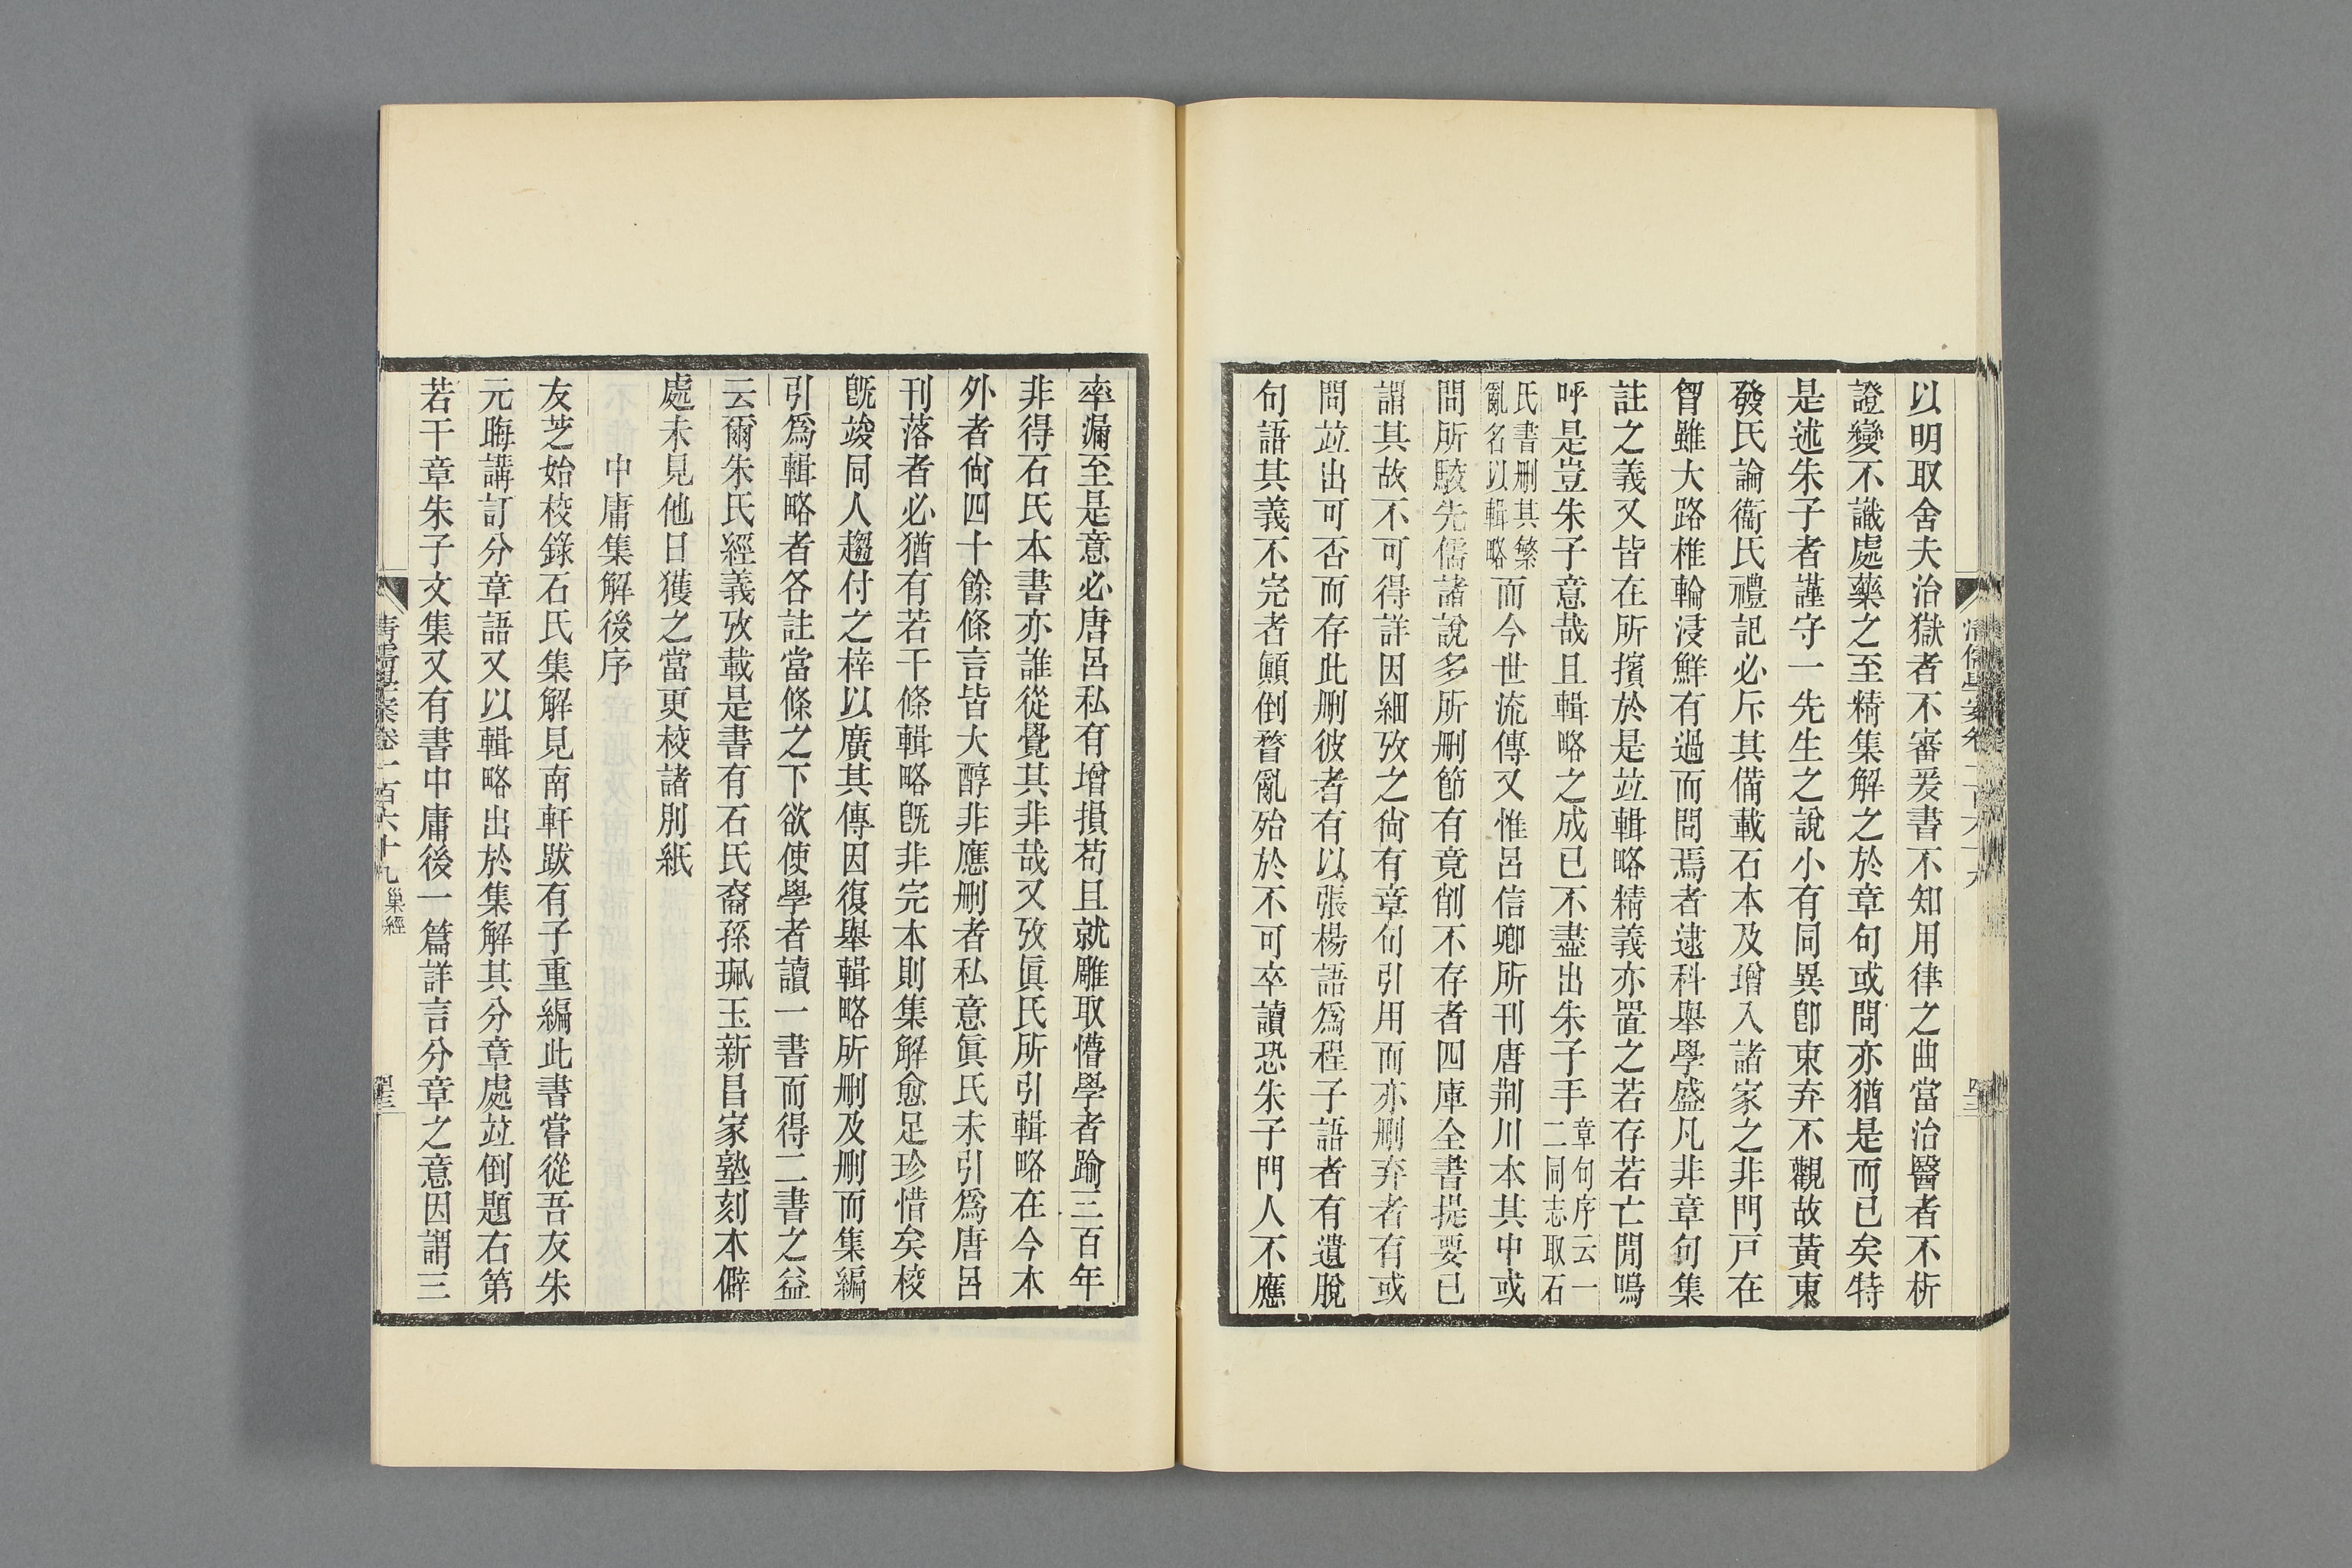 以明取舍夫治獄者不審爰書不知用律之曲當治醫者不析
證變不識處藥之至精集解之於章句或問亦猶是而已矣特
是述朱子者謹守一先生之說小有同異卽束弃不觀故黃東
發氏論衞氏禮記必斥其備載石本及增入諸家之非門戸在
曾雖大路椎輪浸鮮有過而問焉者逮科舉學盛凡非章句集
註之義又皆在所擯於是竝輯略精義亦置之若存若亡閒嗚
呼是豈朱子意哉且輯略之成已不盡出朱子手章句序云一二同志取石
氏書刪其繁亂名以輯略而今世流傳又惟呂信卿所刊唐荆川本其中或
問所駮先儒諸說多所刪節有竟削不存者四庫全書提要已
謂其故不可得詳因細攷之尙有章句引用而亦刪弃者有或
問竝出可否而存此刪彼者有以張楊語爲程子語者有遺脫
句語其義不完者顚倒瞀亂殆於不可卒讀恐朱子門人不應
率漏至是意必唐呂私有增損苟且就雕取懵學者踰三百年
非得石氏本書亦誰從覺其非哉又攷眞氏所引輯略在今本
外者尙四十餘條言皆大醇非應刪者私意眞氏未引爲唐呂
刊落者必猶有若干條輯略旣非完本則集解愈足珍惜矣校
旣竣同人趨付之梓以廣其傳因復舉輯略所刪及刪而集編
引爲輯略者各註當條之下欲使學者讀一書而得二書之益
云爾朱氏經義攷載是書有石氏裔孫珮玉新昌家塾刻本僻
處未見他日獲之當更校諸別紙
中庸集解後序
友芝始校錄石氏集解見南軒跋有子重編此書嘗從吾友朱
元晦講訂分章語又以輯略出於集解其分章處竝倒題右第
若干章朱子文集又有書中庸後一篇詳言分章之意因謂三
清儒學案卷二百六十九 巢經